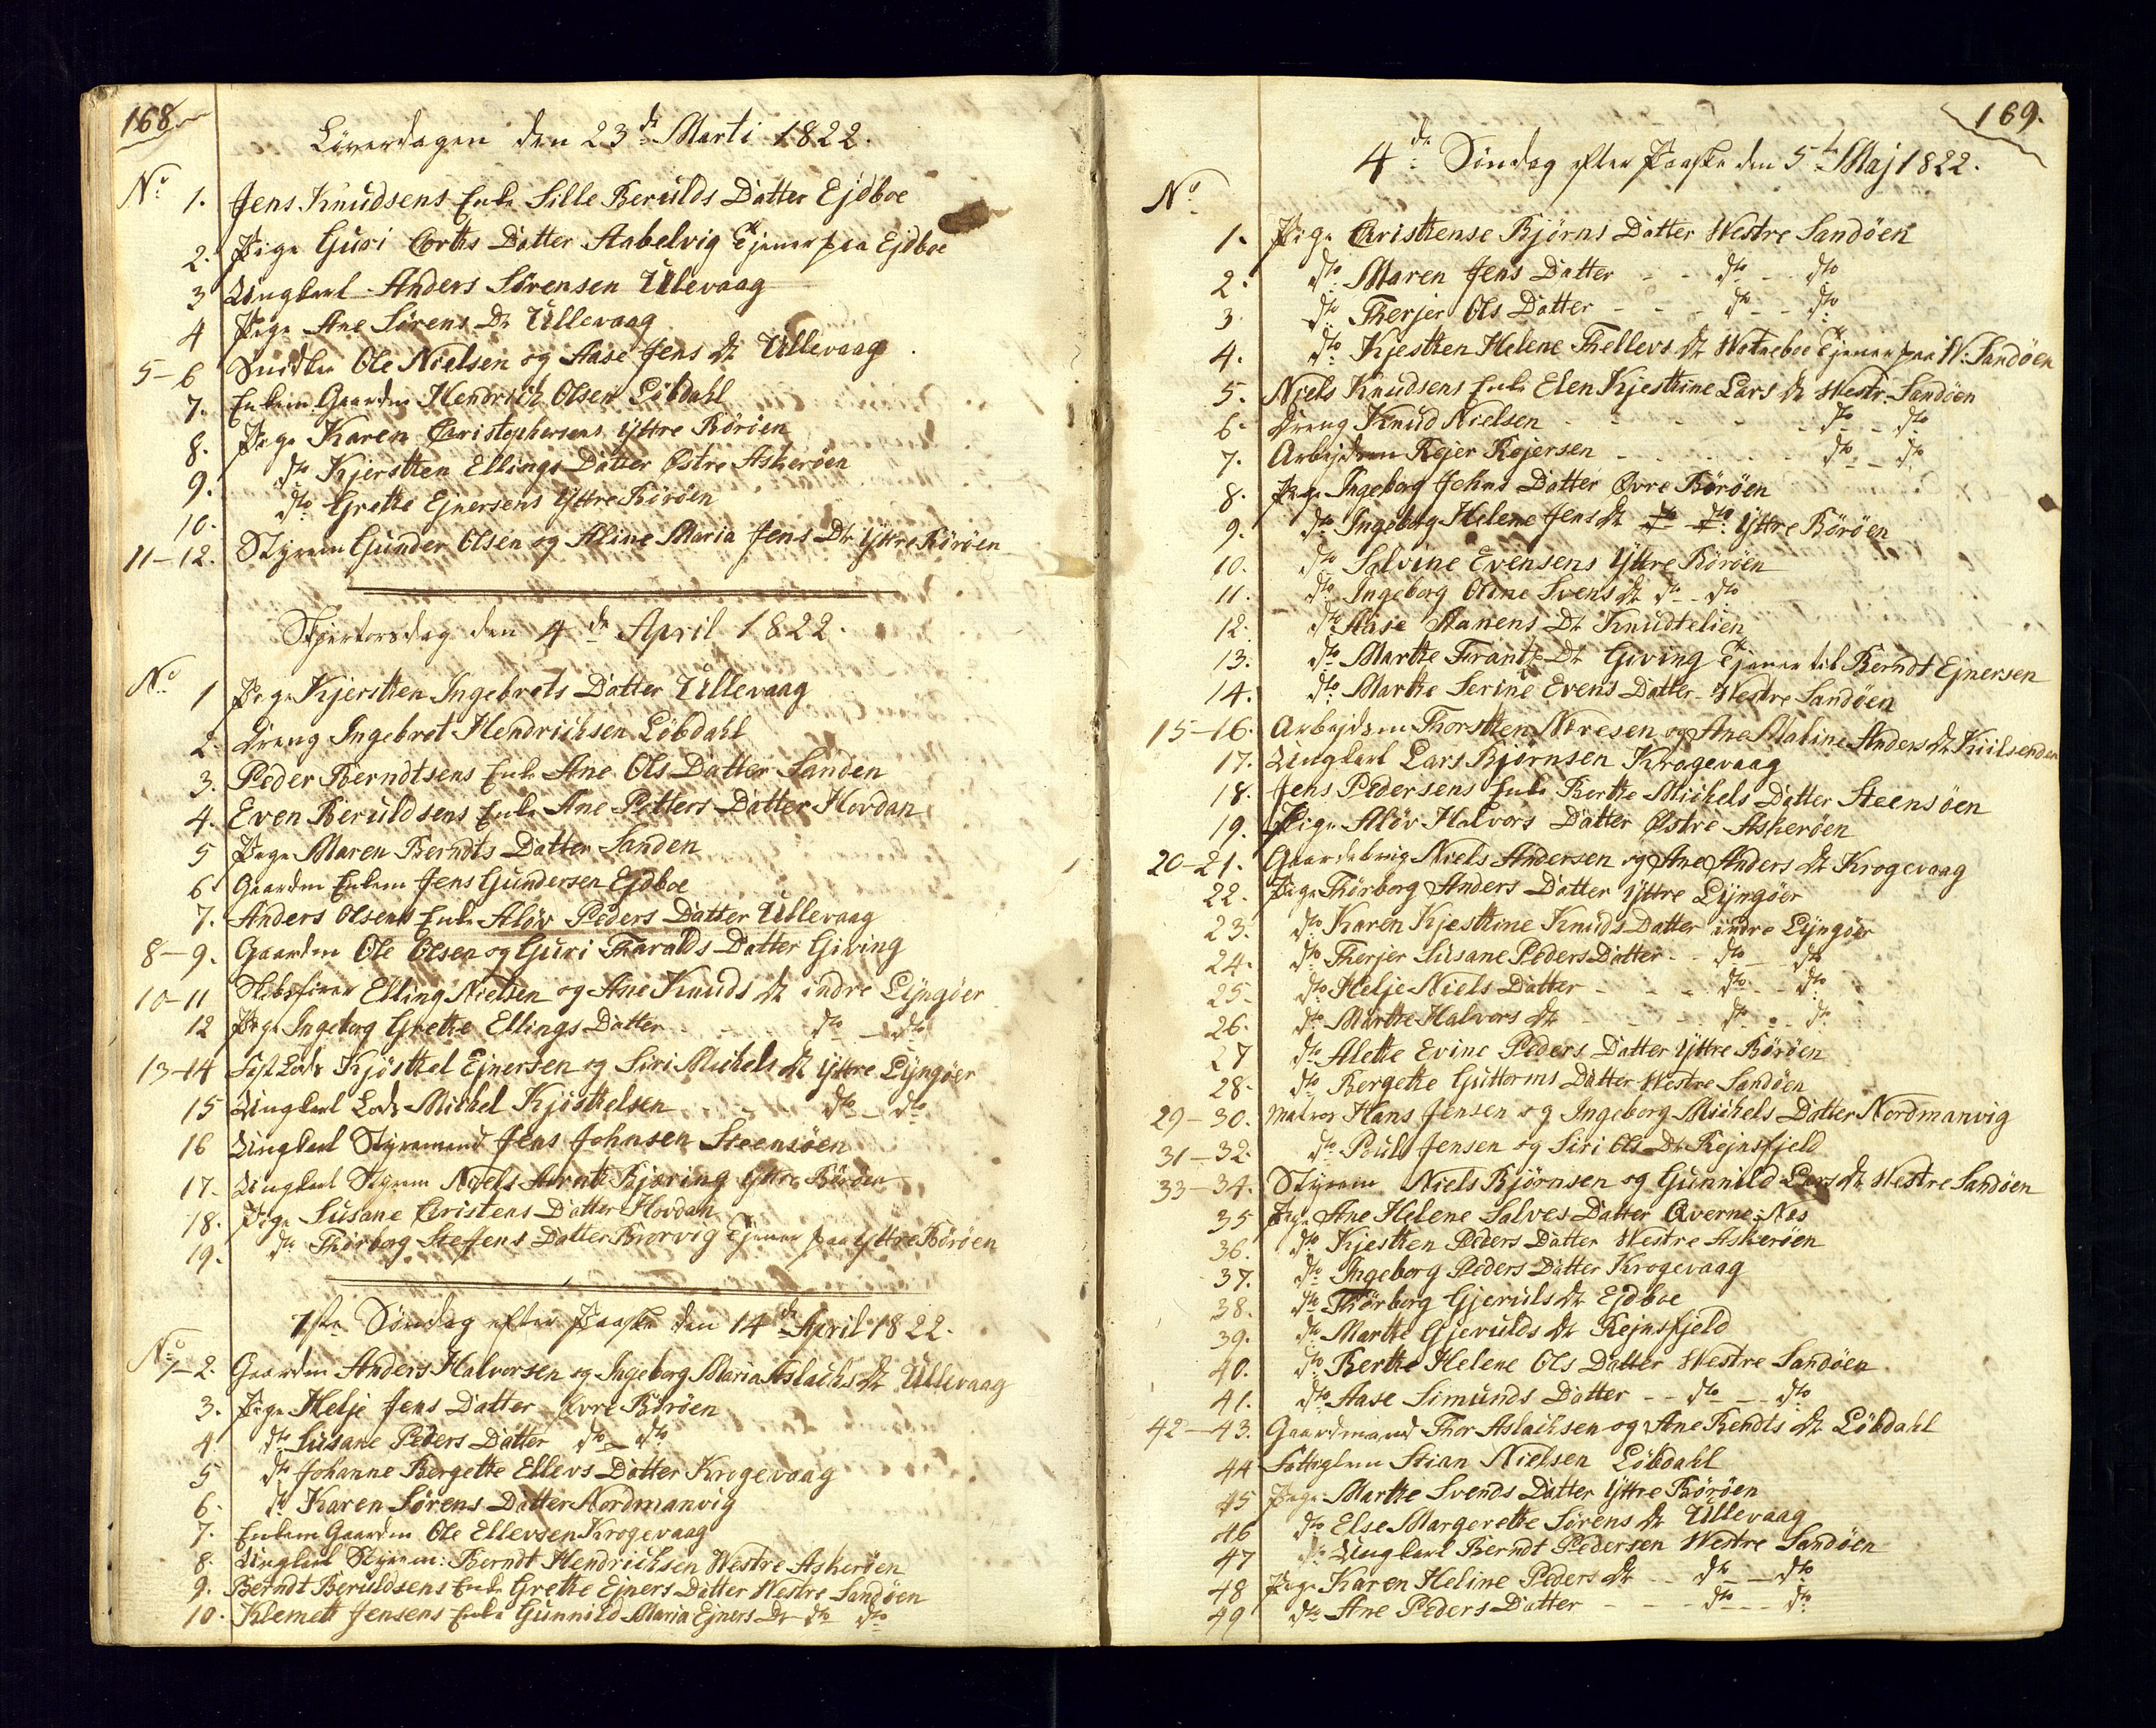 168.
Löverdagen den 23de Marti 1822.
No 1. Jens Knudsens Enke Sille Berulds Datter Ejdboe
2. Pige Guri Corths Datter Aabelvig Tjener paa Ejdboe
3 Ungkarl Anders Sörensen Ullevaag
4 Pige Ane Sörens Dr Ullevaag
5-6 Ole Nielsen og Aase Jens Dr Ullevaag
7. Enkem Gaardm Hendrich Olsen Löbdahl
8. Pige Karen Christophersens Yttre Böröen
9. dto Kjersthen Ellings Datter Östre Askeröen
10. dto Grethe Ejnersens Yttre Böröen
11-12. Styrem Gunder Olsen og Aline Maria Jens Dr Yttre Böröen
Skjertorsdag den 4de April 1822.
No 1 Pige Kjersthen Ingebrets Datter Ullevaag
2. Dreng Ingebret Hendrichsen Löbdahl
3. Peder Berndtsens Enke Ane Ols Datter Sanden
4. Even Beruldsens Enke Ane Petters Datter Hovdan
5 Pige Maren Berndts Datter Sanden
6. Gaardm Enkem Jens Gundersen Ejdboe
7. Anders Olsens Enke Alöv Peders Datter Ullevaag
8-9. Gaardm Ole Olsen og Guri Tharalds Datter Giving
10-11 Elling Nielsen og Ane Knuds Dr indre Lyngöer
12 Pige Ingeborg Grethe Ellings Datter dto - dto
13-14 Lods Kjösthel Ejnersen og Siri Michels Dr Yttre Lyngöer
15 Ungkarl Lods Michel Kjösthelsen - - dto - dto
16 Ungkarl Styremand Jens Johnsen Steensöen
17. Ungkarl Styrem Niels Arnth Bjæring Yttre Böröen
18. Pige Susane Christens Datter Hovdan
19. dto Thorborg Steffens Datter Tjener paa Yttre Böröen
1ste Söndag efter Paaske den 14de April 1822.
No 1-2. Gaardm Anders Halvorsen og Ingeborg Maria Aslachs Dr Ullevaag
3. Pige Helje Jens Datter Øvre Böröen
4. dto Susane Peders Datter dto - dto
5 dto Johanne Bergethe Ellevs Datter Krogevaag
6. dto Karen Sörens Datter Nordmanvig
7. Enkem Gaardm Ole Ellevsen Krogevaag
8. Ungkarl Styrem: Berndt Hendrichsen Westre Askeröen
9. Berndt Beruldsens Enke Grethe Ejners Datter Westre Sandöen
10. Klemeth Jensens Enke Gunnild Maria Ejners Dr dto dto
169.
4de Söndag efter Paaske den 5te Maj 1822.
No
1. Pige Christhense Bjørns Datter Westre Sandöen
2. dto Maren Jens Datter - - dto - dto
3. dto Therjer Ols Datter - - - dto - - dto
4. dto Kjesthen Helene Thellevs Dr Tjener paa W: Sandöen
5. Niels Knudsens Enke Elen Kjesthine Lars Dr Westr: Sandöen
6. Dreng Knud Nielsen - - - - - dto - dto
7. Arbejdsm Rejer Rejersen - - - - - dto - dto
8. Pige Ingeborg Johns Datter Øvre Böröen
9. dto Ingeborg Helene Jens Dr dto dto Yttre Böröen
10. dto Salvine Evensens Yttre Böröen
11. dto Ingeborg Oline Svens Dr dto - dto
12. dto Aase Aanens Dr Knudtelien
13. dto Marthe Frantz Dr Giving Tjener til Berndt Ejnersen
14. dto Marthe Serine Evens Datter Westre Sandöen
15-16. Arbejdsm Thorsthen Niresen og Ane Maline Anders Dr Kiilsenden
17. Ungkarl Lars Bjørnsen Krogevaag
18. Jens Pedersens Enke Berthe Michels Datter Steensöen
19. Pige Alöv Halvors Datter Östre Askeröen
20-21. Niels Andersen og Ane Anders Dr Krogevaag
22. Pige Thorborg Anders Datter Yttre Lyngöer
23. dto Karen Kjesthine Knuds Datter indre Lyngöer
24. dto Therjer Susane Peders Datter - - dto - dto
25. dto Helje Niels Datter - - - dto - - dto
26. dto Marthe Halvors Dr - - - dto - - dto
27 dto Alethe Evine Peders Datter Yttre Böröen
28. dto Bergethe Guttorms Datter Westre Sandöen
29-30. Matros Hans Jensen og Ingeborg Michels Datter Nordmanvig
31-32. dto Poul Jensen og Siri Ols Dr Rejnsfjeld
33-34. Styrem Niels Bjørnsen og Gunnild Lars Dr Westre Sandöen
35 Pige Ane Helene Salves Datter Qverne-Næs
36. dto Kjesthen Peders Datter Westre Askeröen
37. dto Ingeborg Peders Datter Krogevaag
38. dto Thorborg Gjeruls Dr Ejdboe
39. dto Marthe Gjerulds Dr Rejnsfjeld
40. dto Berthe Helene Ols Datter Westre Sandöen
41. dto Aase Simunds Datter - - dto - - dto
42-43. Gaardmand Thor Aslachsen og Ane Bendts Dr Löbdahl
44 Stian Nielsen Löbdahl
45 Pige Marthe Svends Datter Yttre Böröen
46 dto Else Margerethe Sörens Dr Ullevaag
47 Ungkarl Berndt Pedersen Westre Sandöen
48 Pige Karen Heline Peders Dr - - dto - dto
49 dto Ane Peders Datter - - - dto - - dto